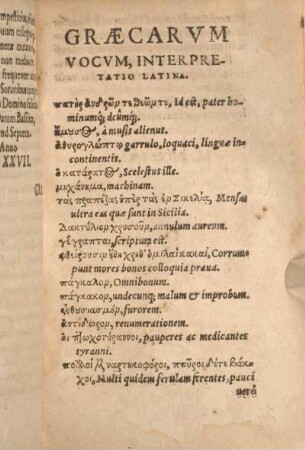 GRÆCARVM
VOCVM, INTERPRE-
TATIO LATINA.
πατὴρ ἀνδρῶν τε θεῶν τε, Id est, pater ho-
minumq́; deûmq́;.
ἄμουσος, à musis alienus.
ἀθυρογλώττῳ garrulo, loquaci, linguæ in-
continentis.
ὁ κατάρατος, Scelestus ille.
μηχάνημα, machinam.
τὰς τραπέζας ὑπὲρ τὰς ἐν Σικελίᾳ, Mensas
ultra eas quæ sunt in Sicilia.
Δακτύλιον χρυσοῦν, annulum aureum.
γέγραπται, scriptum est.
φθείρουσιν ἤθη χρήσθ' ὁμιλίαι κακαί, Corrum-
punt mores bonos colloquia praua.
πάγκαλον, Omnibonum.
πάγκακον, undecunq; malum & improbum.
ἐνθουσιασμόν, furorem.
ἀντίδωρον, renumerationem.
οἱ πτωχοτύραννοι, pauperes ac medicantes
tyranni.
πολλοὶ μὲν ναρθηκοφόροι, παῦροι δέ τε βάκ-
χοι, Multi quidem ferulam ferentes, pauci
uerò
Anno
XXVII.